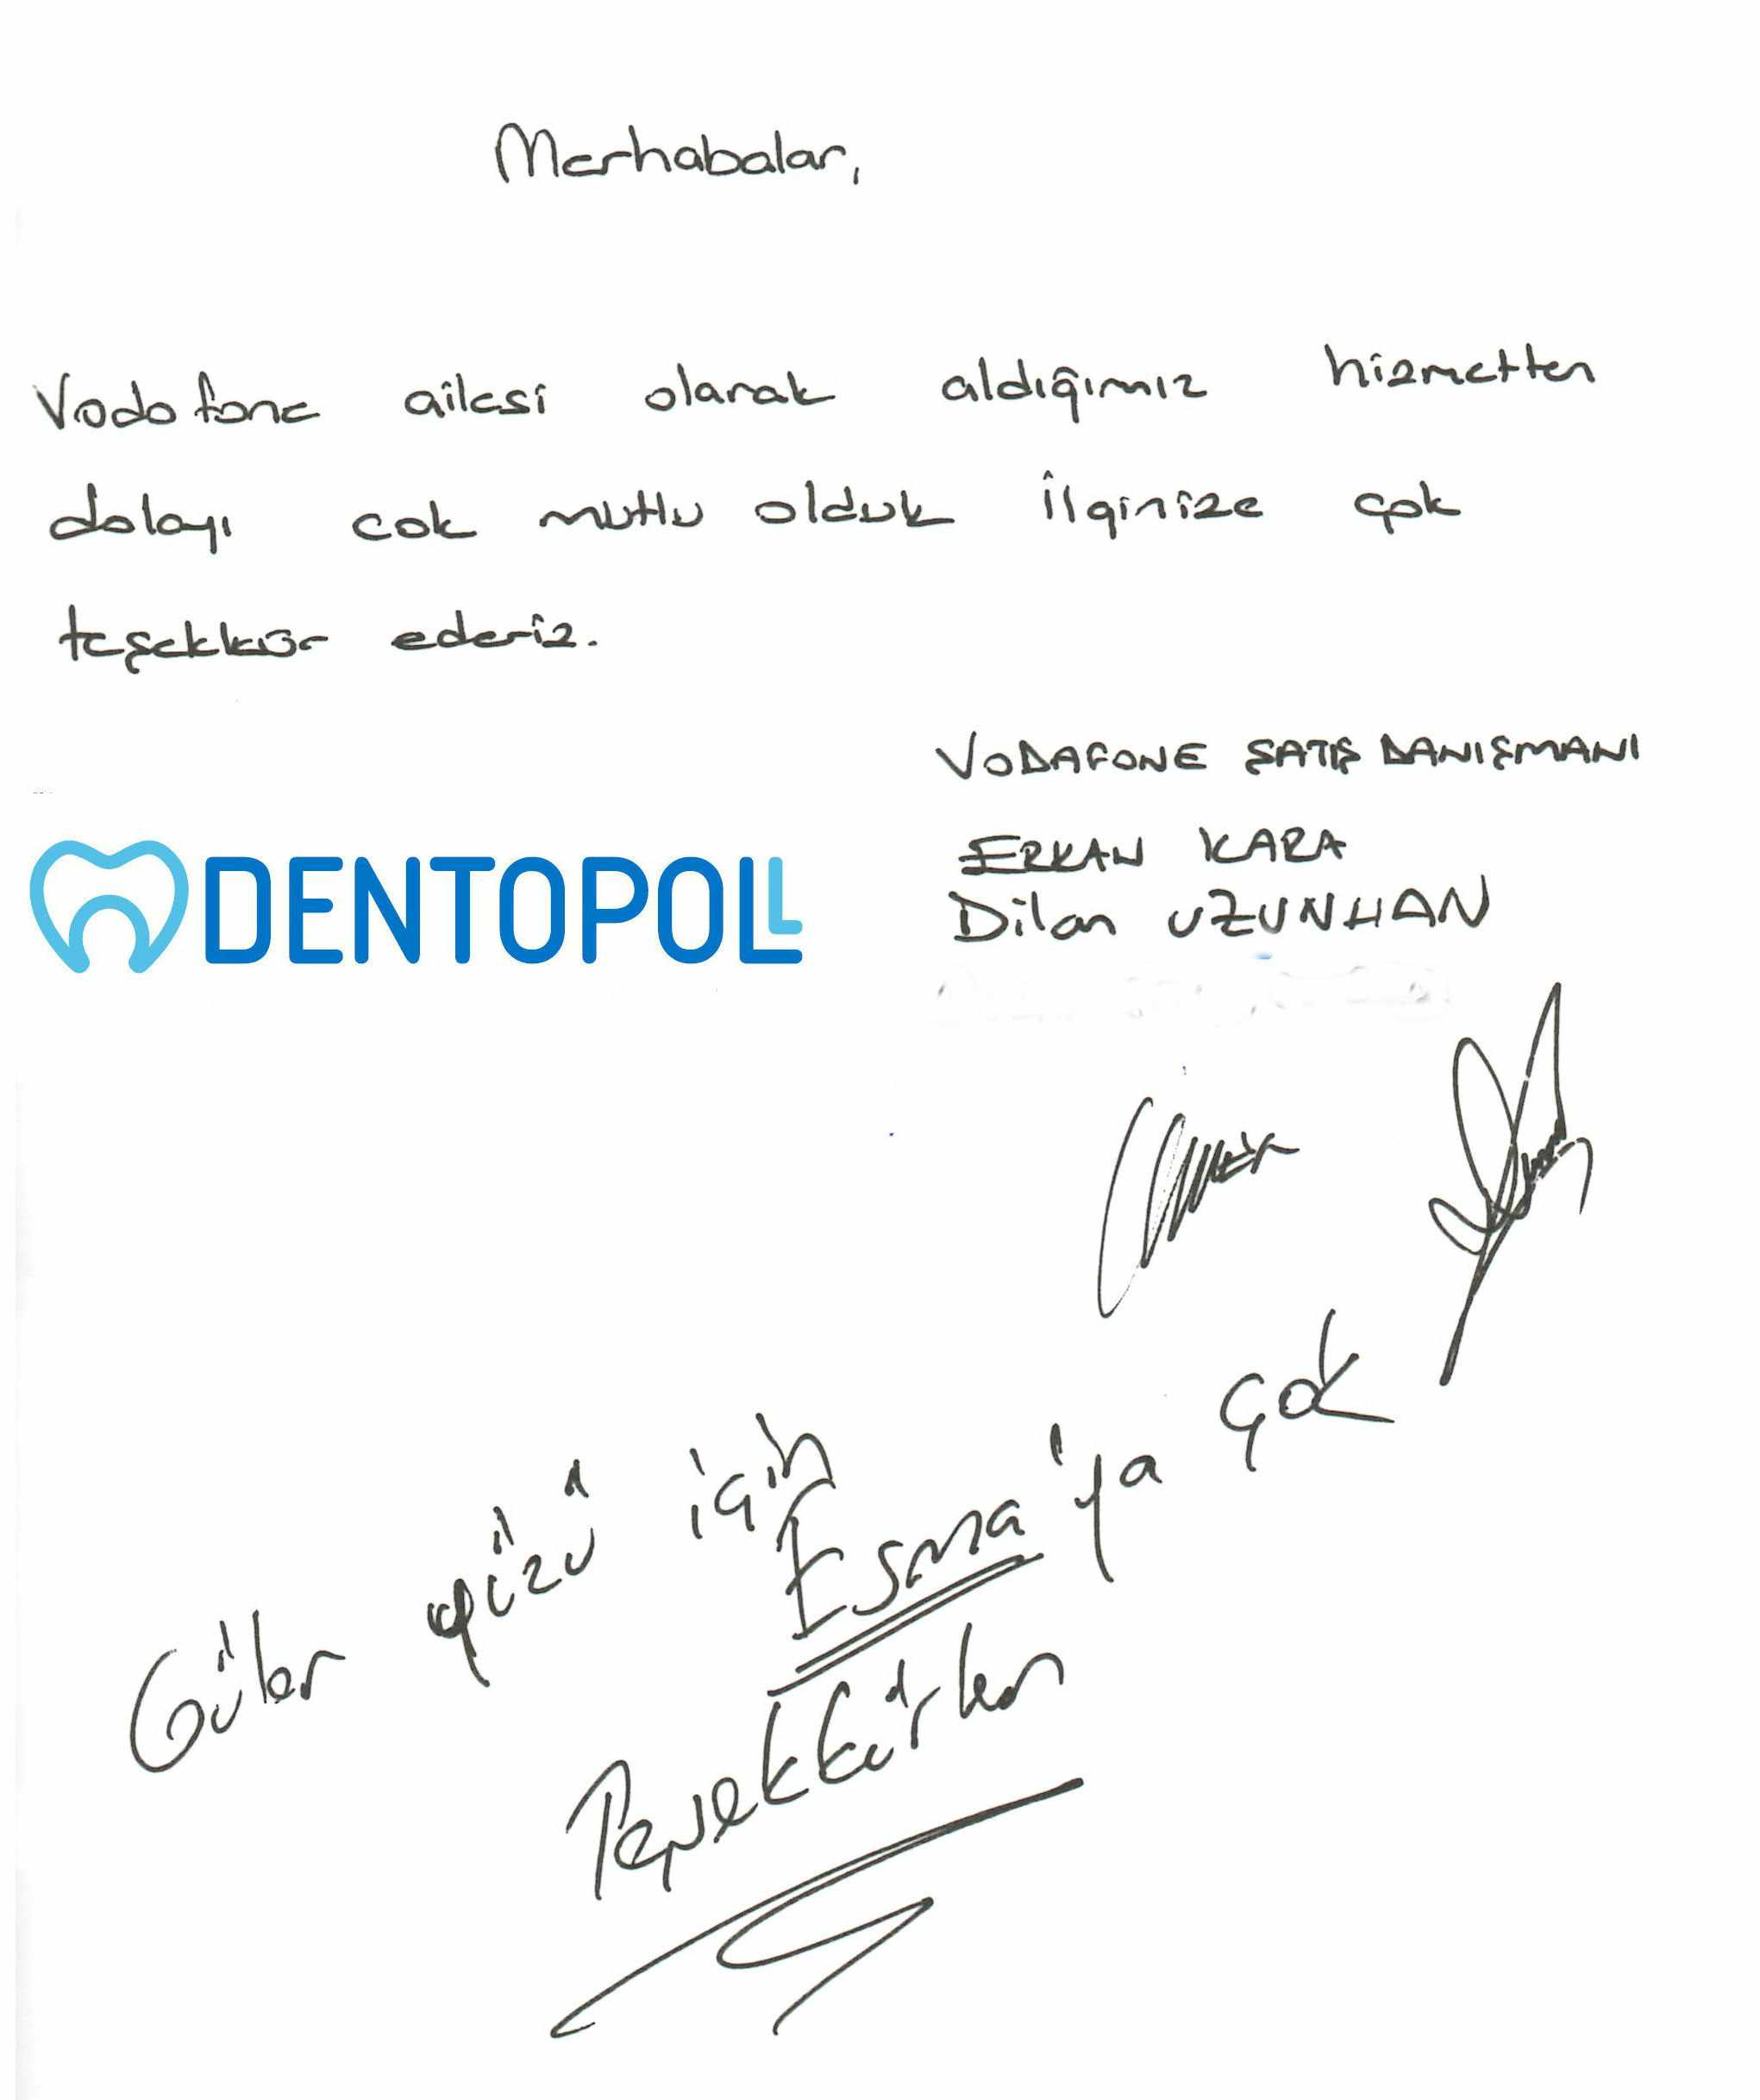 Merhabalar,
Vodafone ailesi olarak aldığımız hizmetten
dolayı cok mutlu olduk ilginize çok
teşekkür ederiz.
VODAFONE SATIŞ DANIŞMANI
ERKAN KARA
Dilan UZUNHAN
DENTOPOLL
Güler yüzü için Esma'ya çok
Teşekkürler